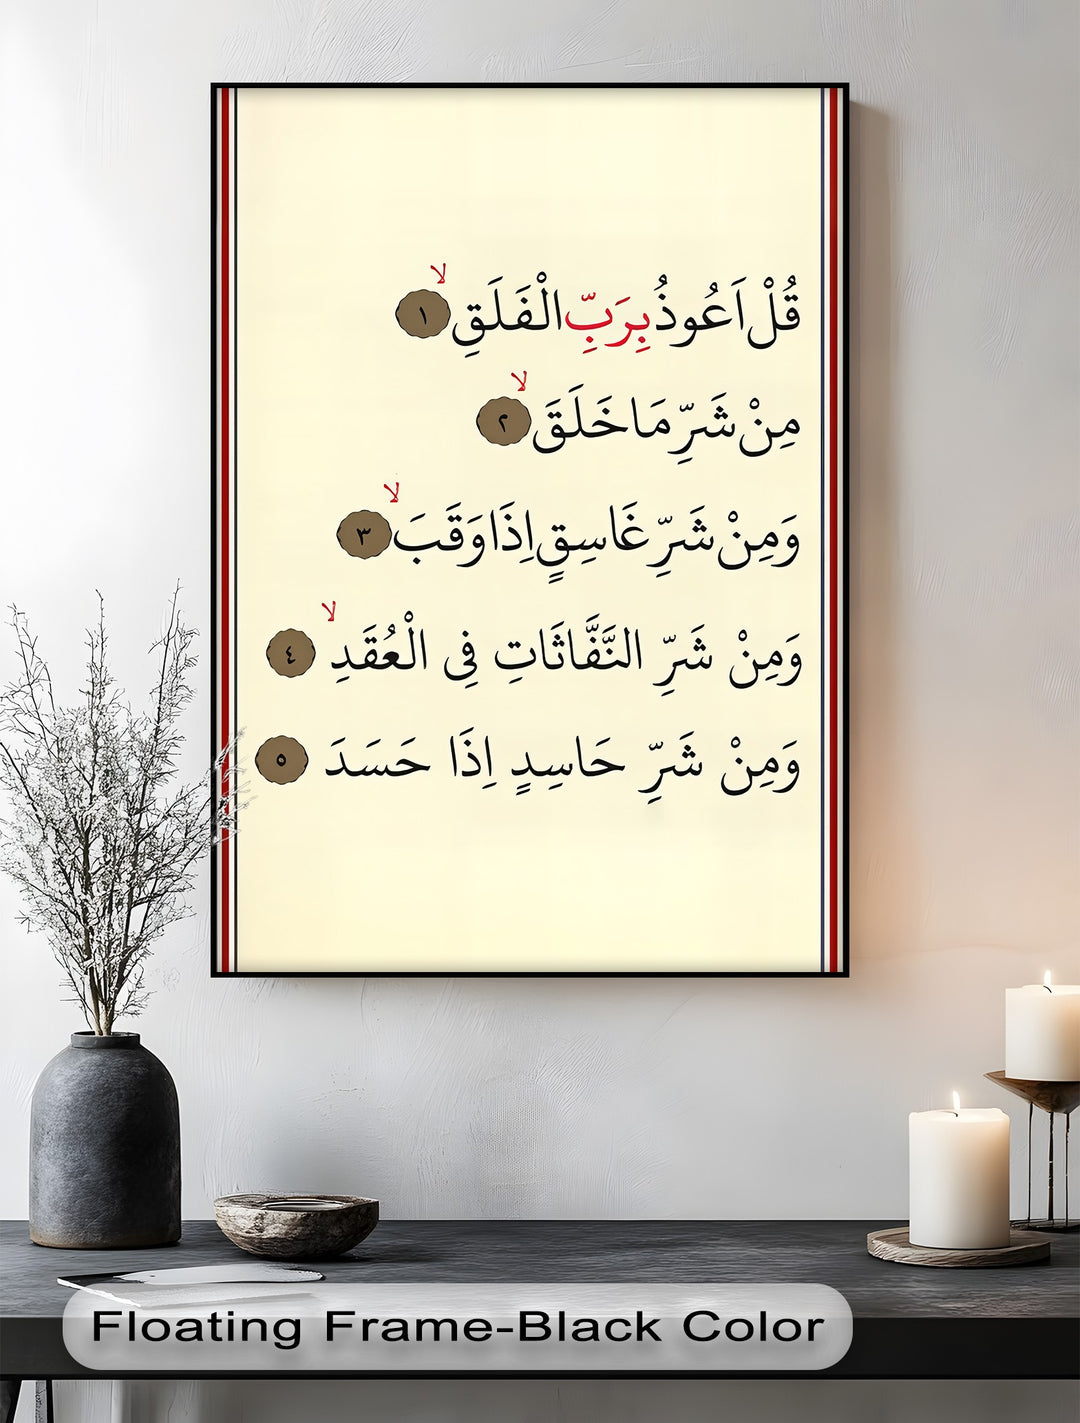 قُلْ اَعُوذُ بِرَبِّ الْفَلَقِۙ ١
مِنْ شَرِّ مَا خَلَقَۙ ٢
وَمِنْ شَرِّ غَاسِقٍ اِذَا وَقَبَۙ ٣
وَمِنْ شَرِّ النَّفَّاثَاتِ فِى الْعُقَدِۙ ٤
وَمِنْ شَرِّ حَاسِدٍ اِذَا حَسَدَ ٥
Floating Frame-Black Color